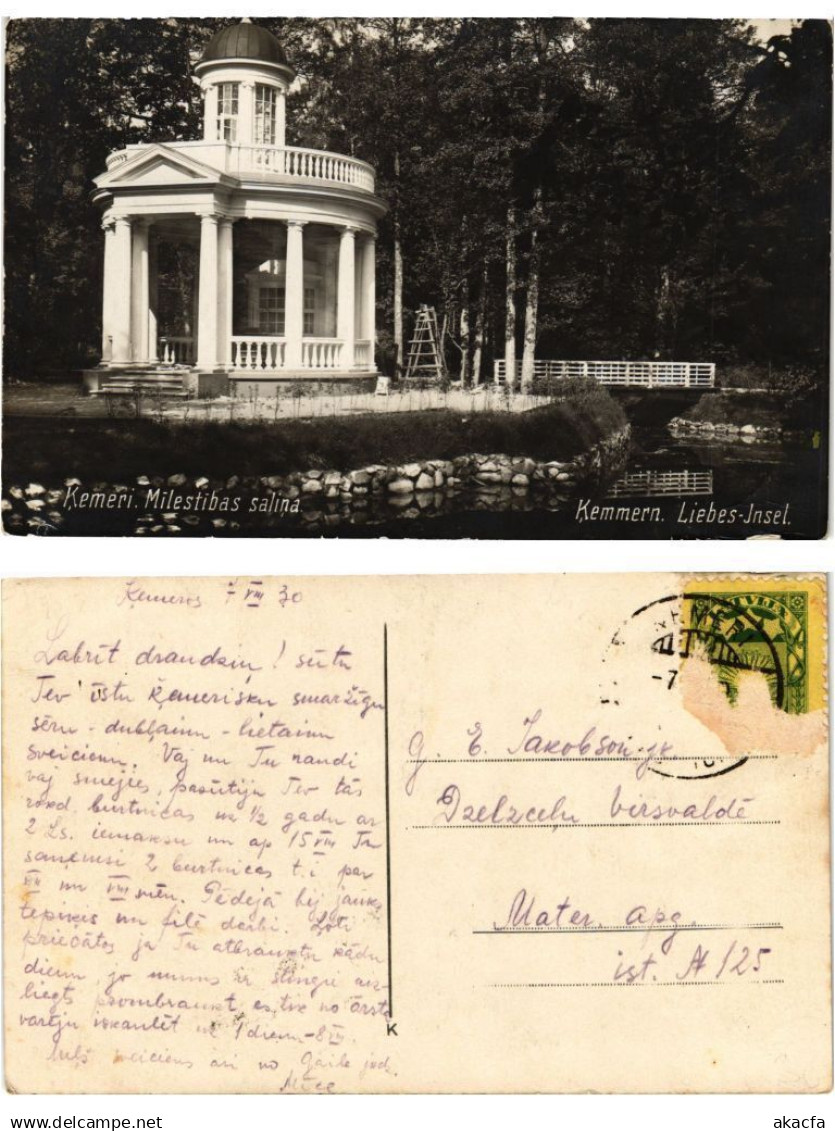 Ķemeri. Mīlestības saliņa.
Ķemmern. Liebes-Jnsel.
Ķemeros 7 VIII 30
Labrīt draudziņ! sūtu
Tev īstu ķemerišķu smaržīgu
sēru - dubļainu - lietainu
sveicienu. Vaj nu Tu raudi
vaj smejies, pasūtīju Tev tās
rokd. burtnīcas uz 1/2 gadu ar
2 Ls. iemaksu un ap 15 VIII Tu
saņemsi 2 burtnīcas t.i par
VII un VIII mēn. Pēdējā bij jauki
tepiķis un filē darbi. Ļoti
priecātos ja Tu atbrauktu kādu
dienu, jo mums ir stingri aiz-
liegts pa
no ārsta
varēju izkaulēt uz 1 dienu - 8 VIII.
sveiciens arī no
KEMER
LATVIJA
g. E. Jakobson jk.
Dzelzceļu virsvaldē
Mater. apg.
ist. № 125
K
akacfa.com